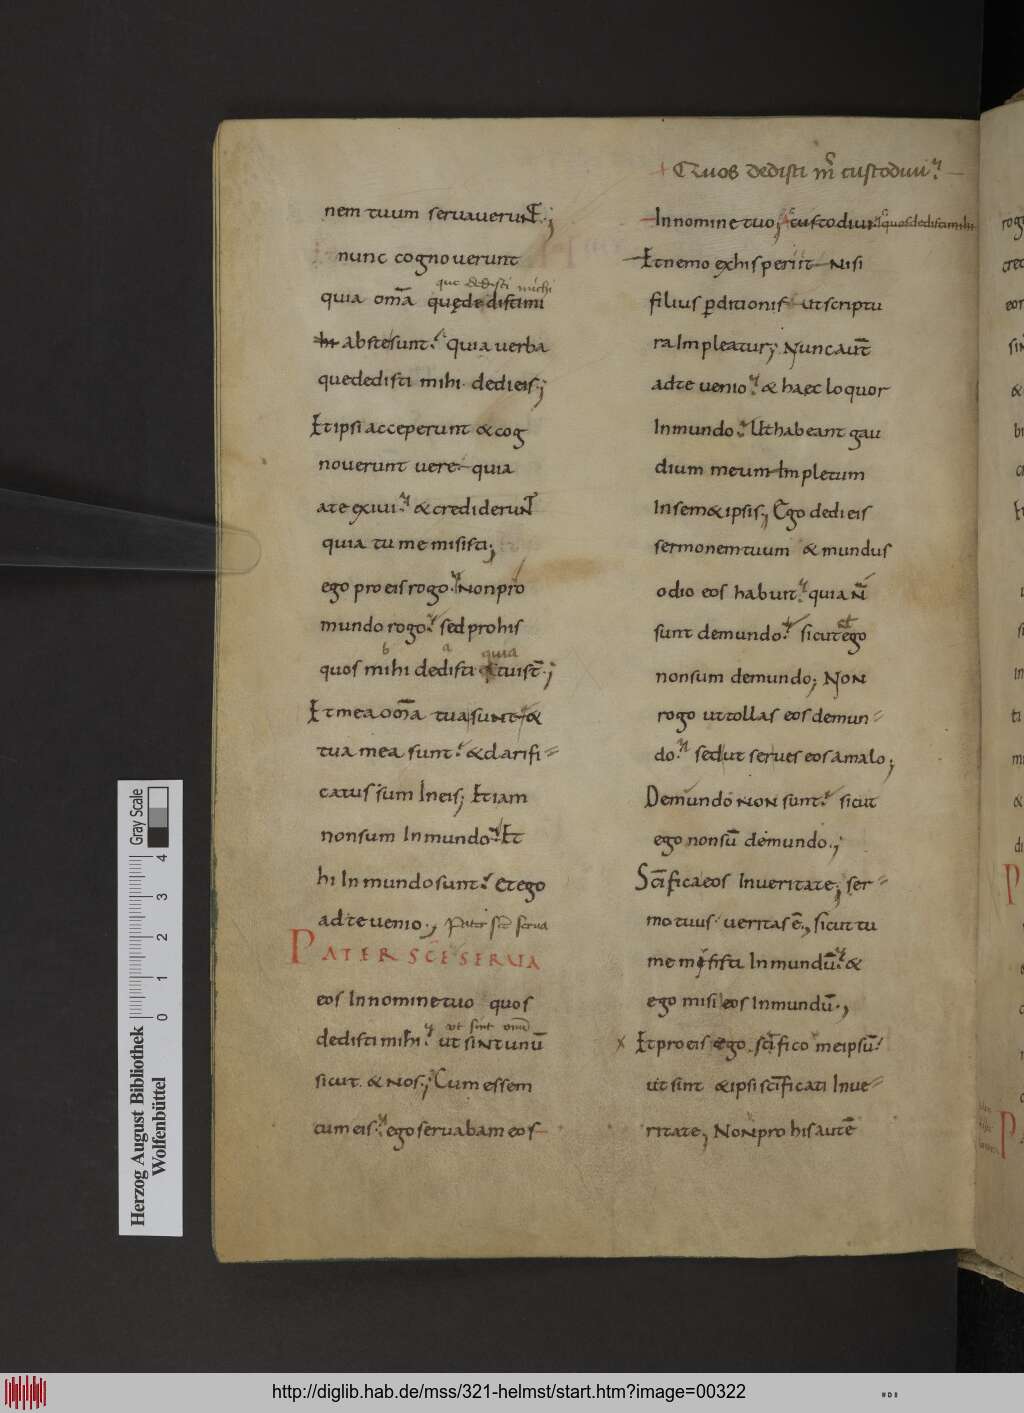 nem tuum seruaueruNT.;
nunc cognouerunt
que dedisti michi
quia om̅a quęde distimi
hi abstesunt. quia uerba
quededisti mihi. dedieis.;
Et ipsi acceperunt & cog
nouerunt uere. quia
ate exiui. & crediderunT
quia tu me misisti;
ego pro eis rogo. Non pro
mundo rogo. sed pro his
b a quia
quos mihi dedisti & tuist̅.;
Et mea om̅a tua sunt &
tua mea sunt. & clarifi=
catus sum In eis; Etiam
non sum In mundo. Et
hi In mundo sunt. et ego
ad te uenio., Pater sc̅e serua
PATER SC̅E SERUA
eos In nomine tuo quos
ut sint
dedisti mihi. ut siNt unu̅
sicut. & Nos.; Cum essem
cum eis. ego seruabam eos
+ Quos dedisti m̅ custodiui.
In nomine tuo; custodiui. quos dedisti mihi
Et nemo ex his periit Nisi
filius p̲ditionis ut scriptu
ra Impleatur; Nunc aut̅
ad te uenio. & haec loquor
In mundo. Ut habeant gau
dium meum Impletum
In sem&ipsis; Ego dedi eis
sermonem tuum & mundus
odio eos habuit. quia N̅
et
sunt de mundo. sicut ego
non sum de mundo; NoN
rogo ut tollas eos de mun=
do. sed ut serues eos a malo;
De mundo NoN sunt. sicut
ego non su̅ de mundo.;
Sc̅ifica eos In ueritate; ser=
mo tuus. ueritas e̅., sicut tu
me misisti In mundu̅. &
ego misi eos In mundu̅.,
x Et pro eis ego. sc̅ifico me ipsu̅.
ut sint & ipsi sc̅ificati In ue=
ritate; NoN pro his aute̅
Gray Scale
0 1 2 3 4
Herzog August Bibliothek
Wolfenbüttel
http://diglib.hab.de/mss/321-helmst/start.htm?image=00322